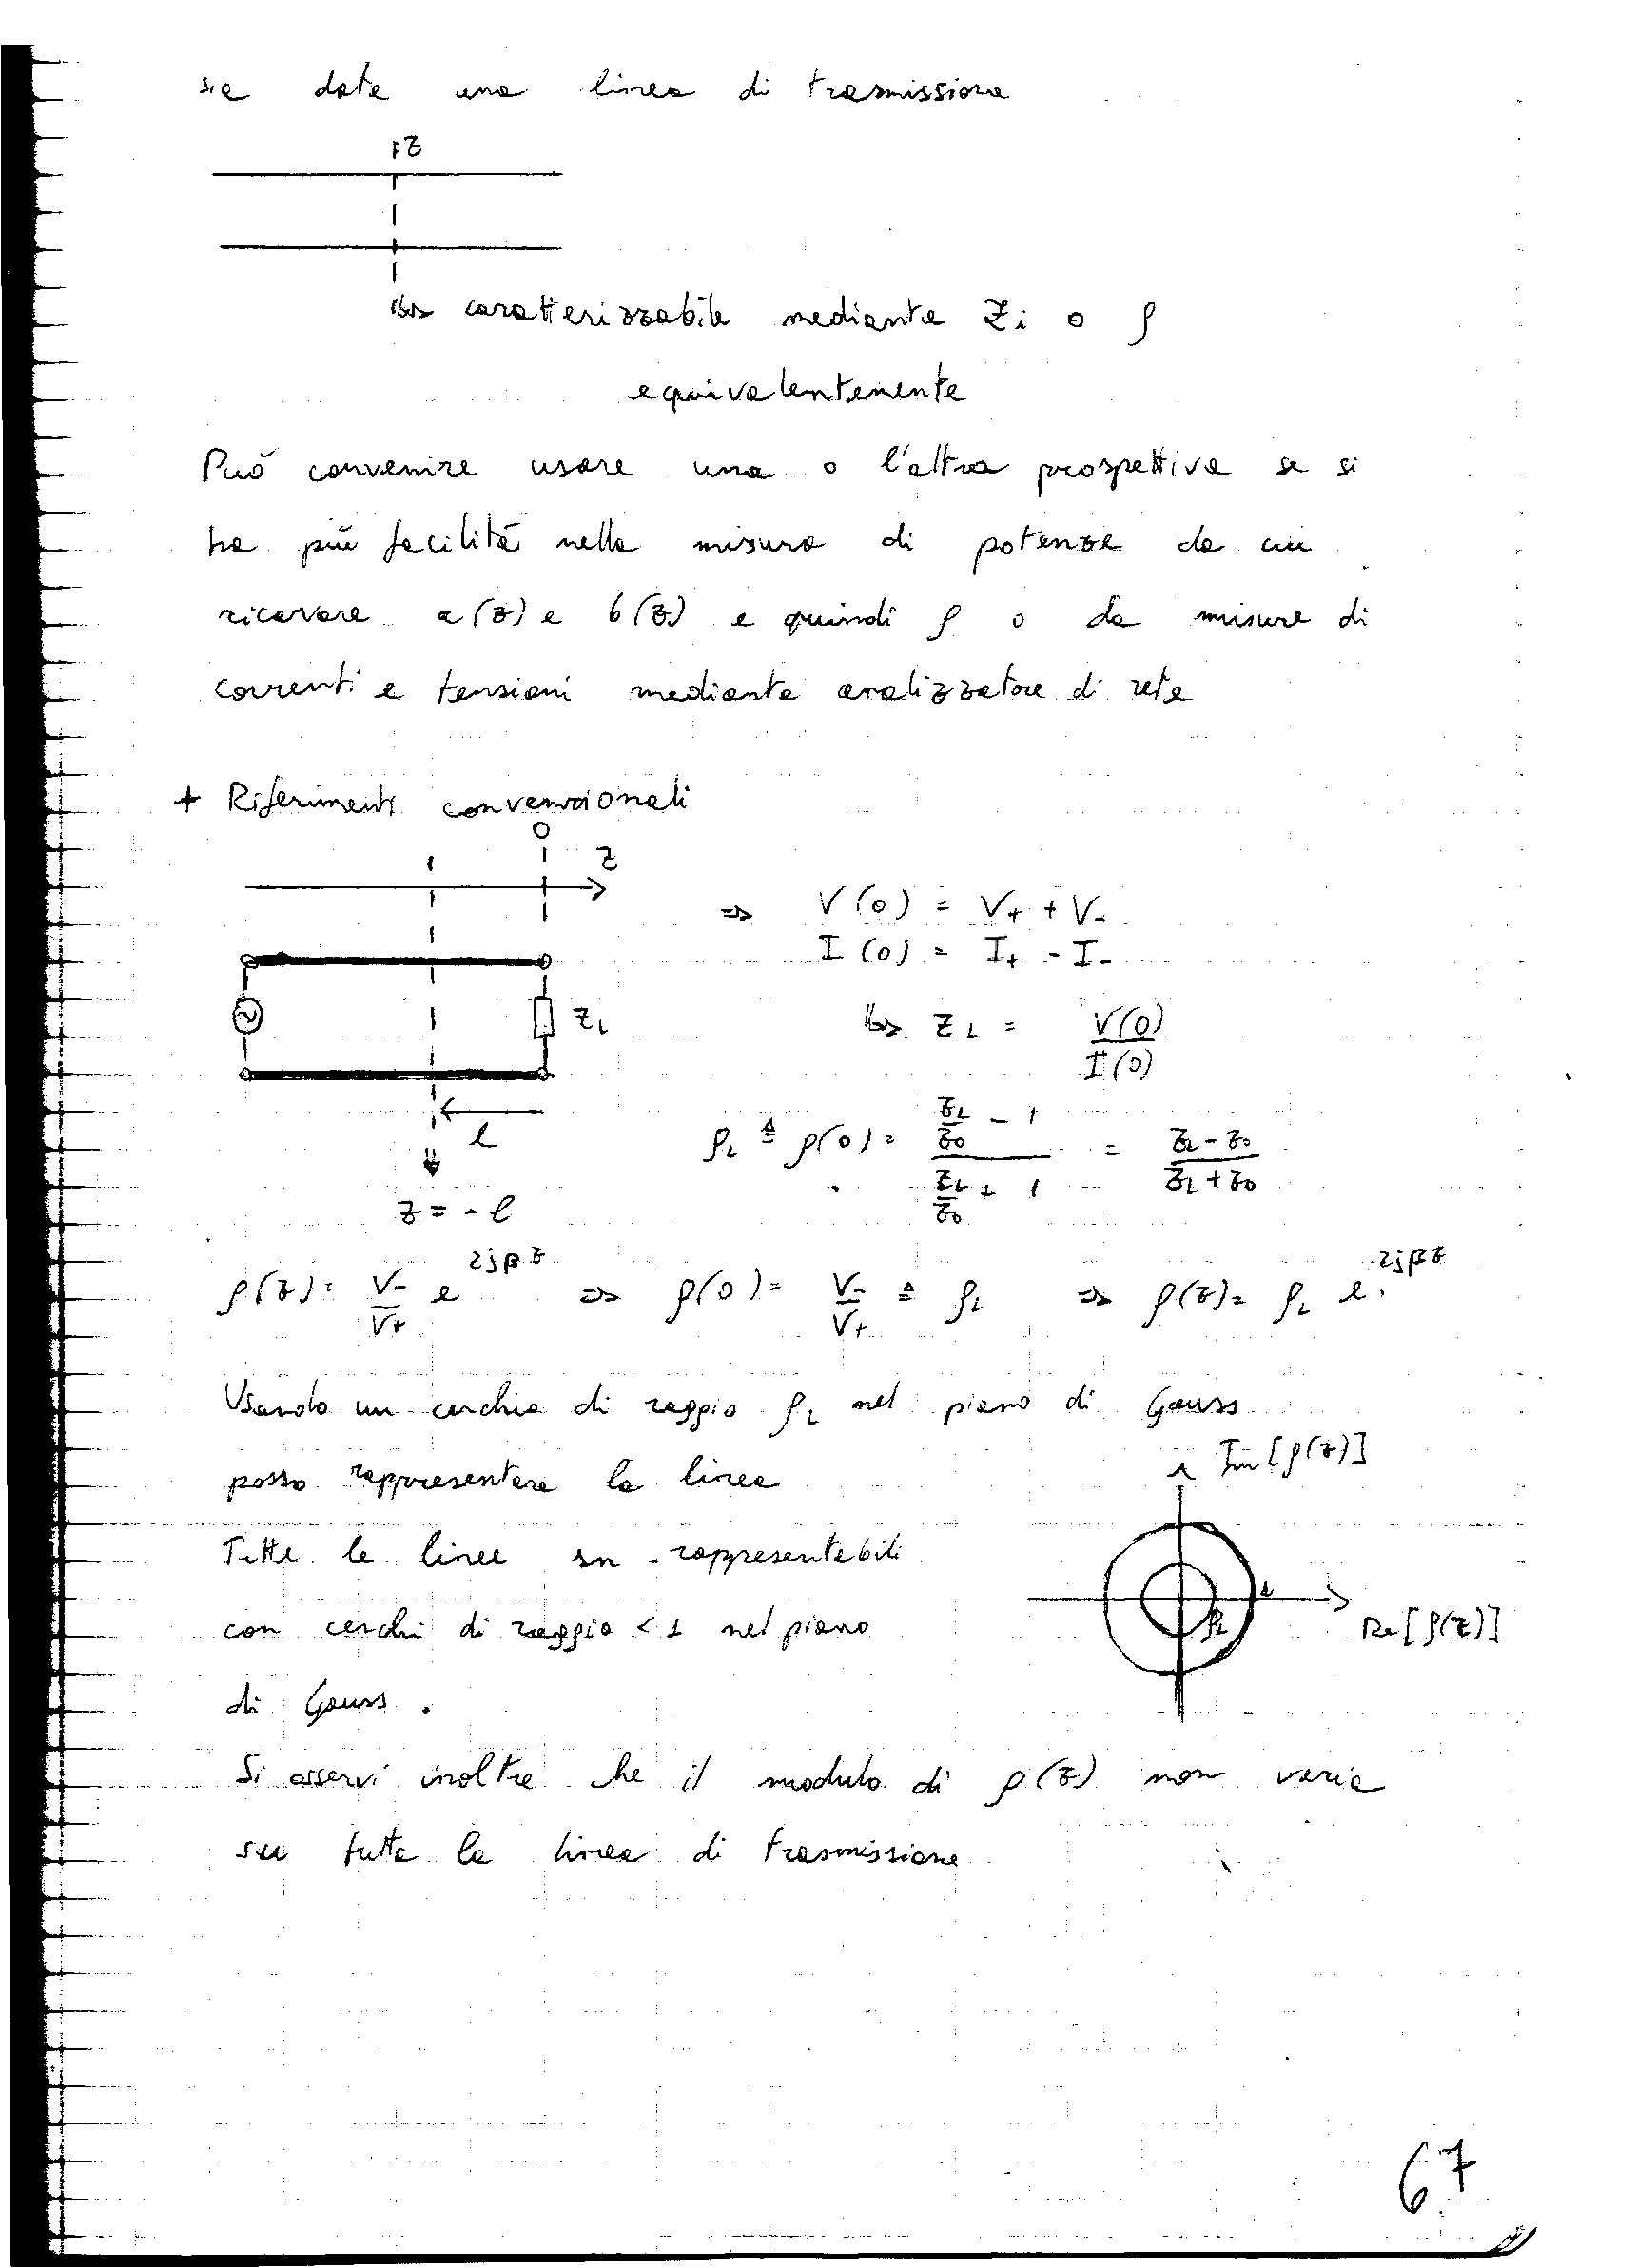 sia data una linea di trasmissione
z
↳ caratterizzabile mediante Zi o ρ
equivalentemente
Può convenire usare una o l'altra prospettiva se si
ha più facilità nella misura di potenze da cui
ricavare a(z) e b(z) e quindi ρ o da misure di
correnti e tensioni mediante analizzatore di rete
+ Riferimenti convenzionali
0
z
⇒ V(0) = V+ + V-
I(0) = I+ - I-
ZL
↳ ZL = V(0) / I(0)
l
ρL ≜ ρ(0) = (ZL/Z0 - 1) / (ZL/Z0 + 1) = (ZL - Z0) / (ZL + Z0)
z = -l
ρ(z) = V-/V+ e^{2jβz} ⇒ ρ(0) = V-/V+ ≜ ρL ⇒ ρ(z) = ρL e^{2jβz}
Usando un cerchio di raggio ρL nel piano di Gauss
posso rappresentare la linea
Im[ρ(z)]
Tutte le linee sn rappresentabili
con cerchi di raggio < 1 nel piano
di Gauss.
1
ρL
Re[ρ(z)]
Si osservi inoltre che il modulo di ρ(z) non varia
su tutta la linea di trasmissione
67